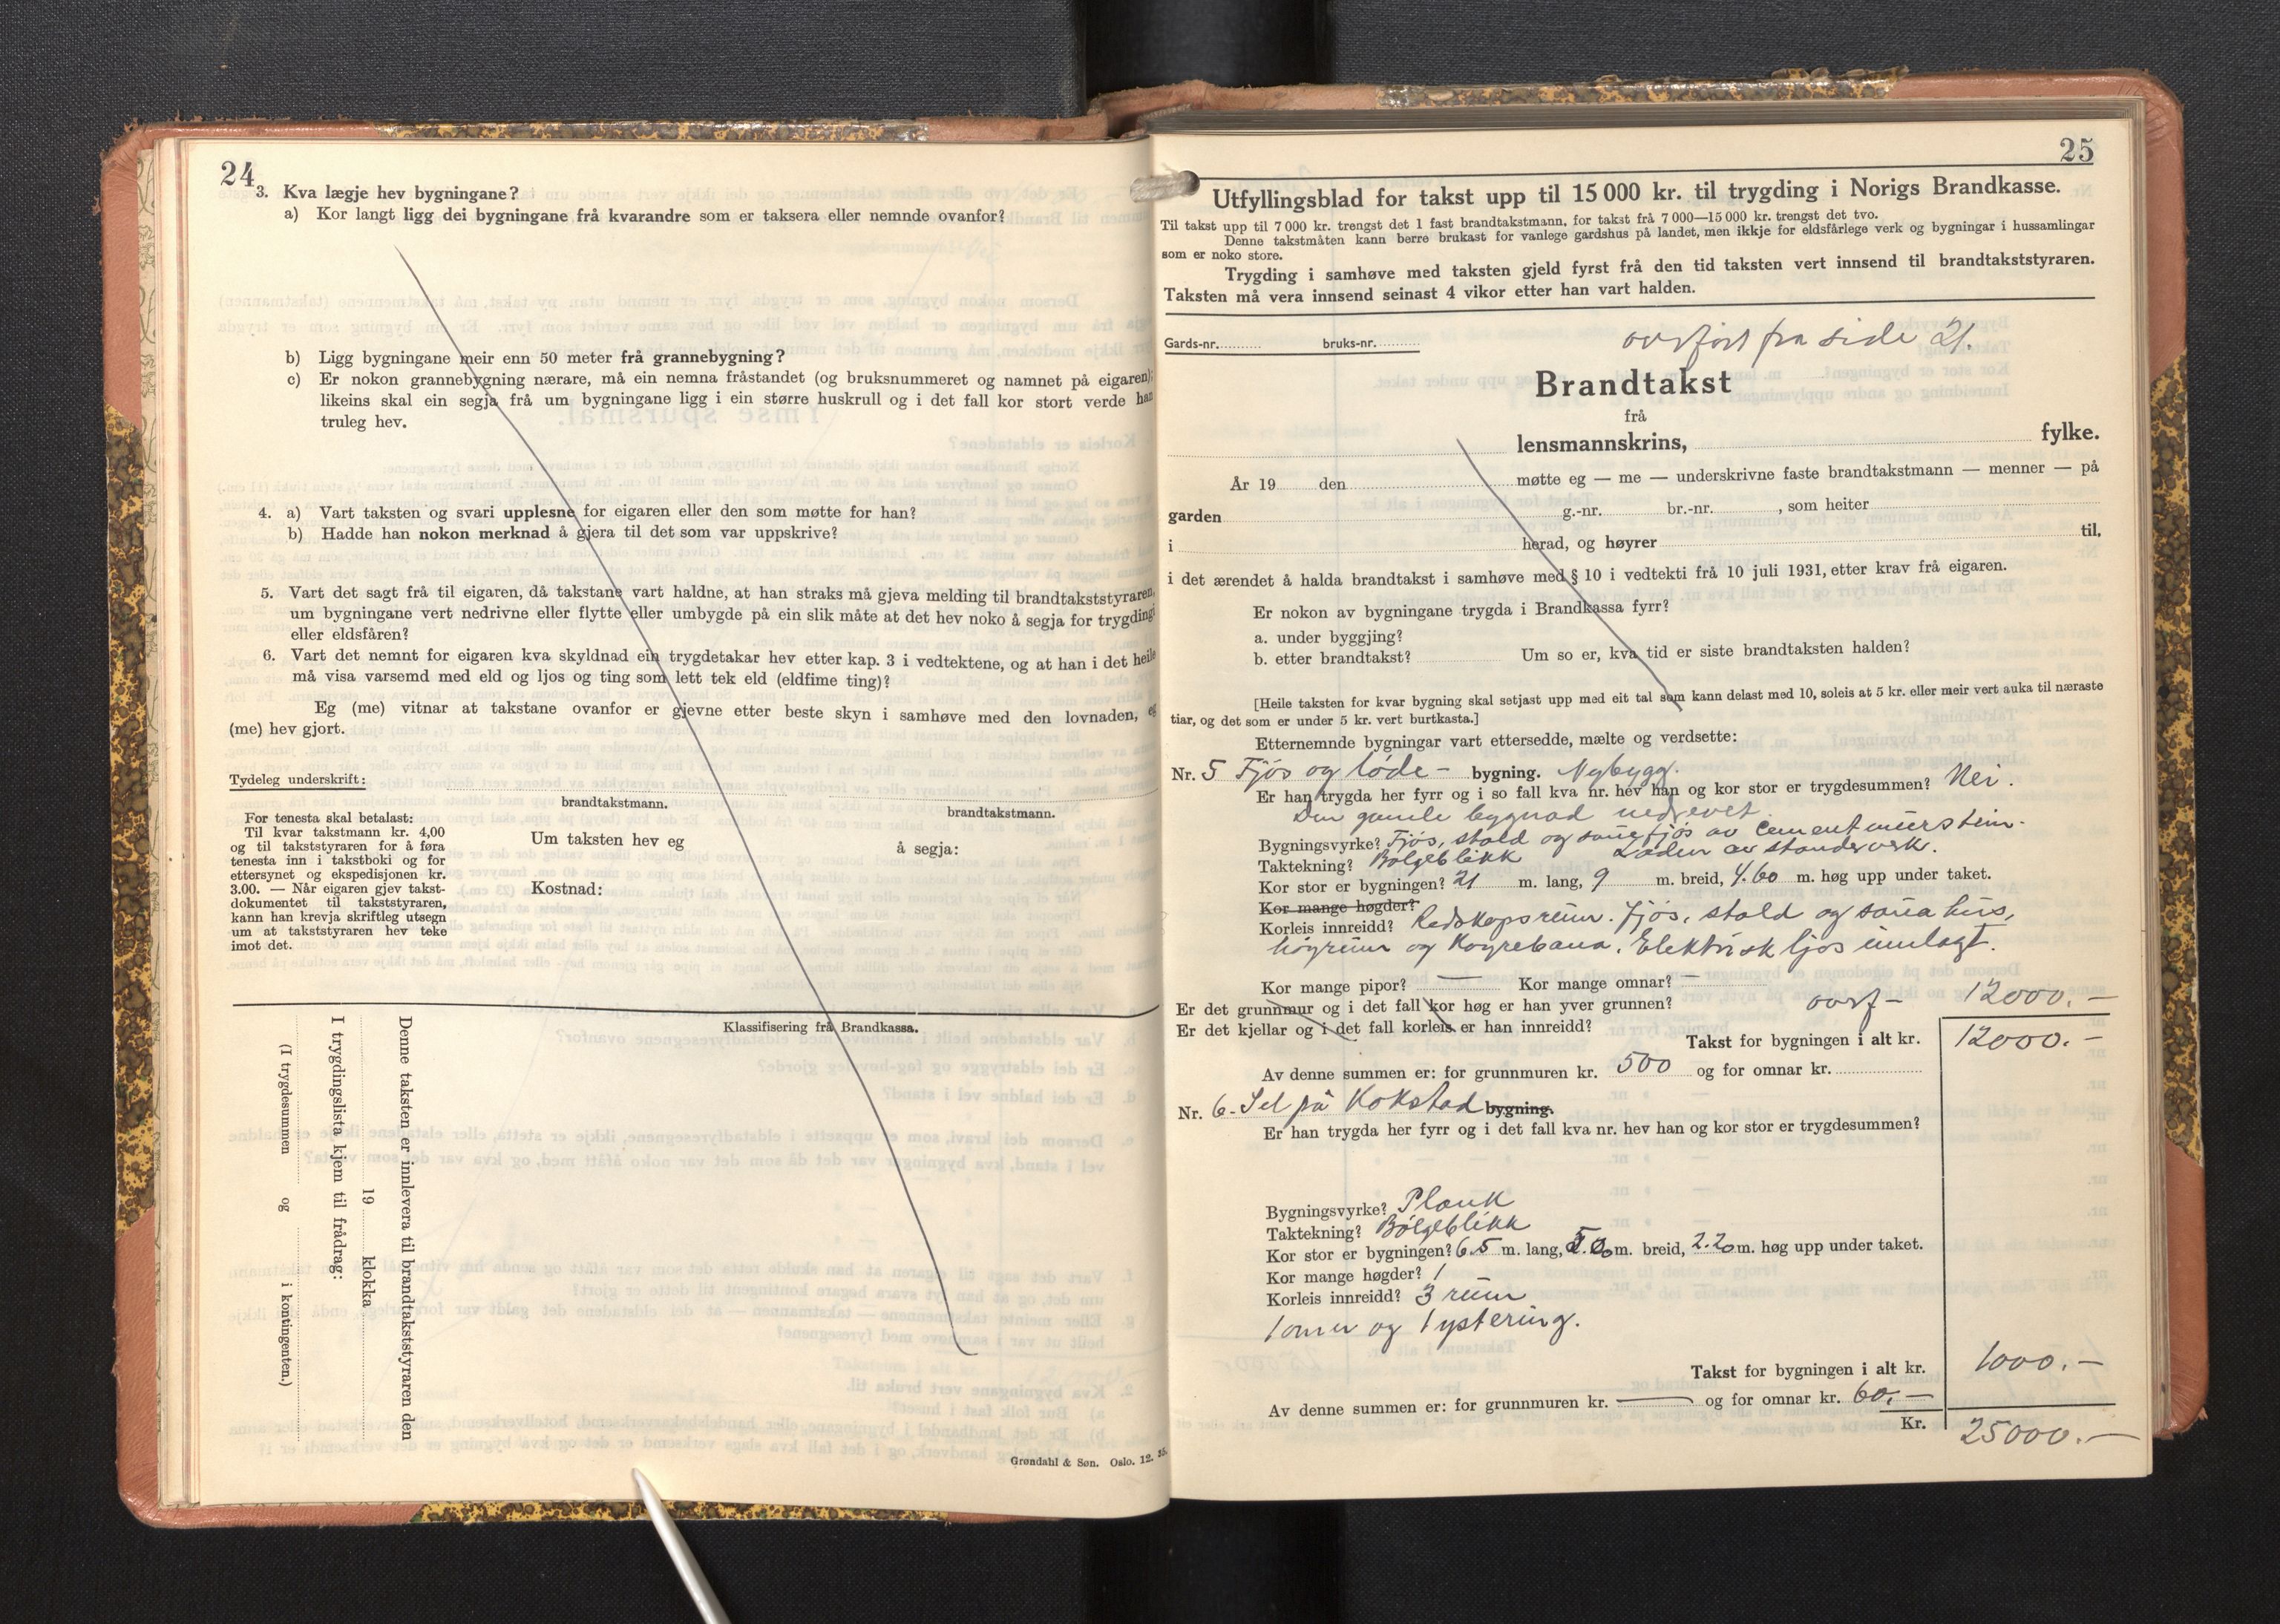 24
3. Kva lægje hev bygningane?
a) Kor langt ligg dei bygningane frå kvarandre som er taksera eller nemnde ovanfor?
b) Ligg bygningane meir enn 50 meter frå grannebygning?
c) Er nokon grannebygning nærare, må ein nemna fråstandet (og bruksnummeret og namnet på eigaren);
likeins skal ein segja frå um bygningane ligg i ein større huskrull og i det fall kor stort verde han
truleg hev.
4. a) Vart taksten og svari upplesne for eigaren eller den som møtte for han?
b) Hadde han nokon merknad å gjera til det som var uppskrive?
5. Vart det sagt frå til eigaren, då takstane vart haldne, at han straks må gjeva melding til brandtakststyraren,
um bygningane vert nedrivne eller flytte eller umbygde på ein slik måte at det hev noko å segja for trygdingi
eller eldsfåren?
6. Vart det nemnt for eigaren kva skyldnad ein trygdetakar hev etter kap. 3 i vedtektene, og at han i det heile
må visa varsemd med eld og ljos og ting som lett tek eld (eldfime ting)?
Eg (me) vitnar at takstane ovanfor er gjevne etter beste skyn i samhøve med den lovnaden, eg
(me) hev gjort.
Tydeleg underskrift:
brandtakstmann.
brandtakstmann.
For tenesta skal betalast:
Til kvar takstmann kr. 4,00
og til takststyraren for å føra
tenesta inn i takstboki og for
ettersynet og ekspedisjonen kr.
3.00. — Når eigaren gjev takst-
dokumentet til takststyraren,
kann han krevja skriftleg utsegn
um at takststyraren hev teke
imot det.
Um taksten hev eg å segja:
Kostnad:
Klassifisering frå Brandkassa.
Denne taksten er innlevera til brandtakststyraren den
19 klokka
I trygdingslista kjem til frådrag:
(I trygdesummen og i kontingenten.)
Grøndahl & Søn. Oslo. 12. 35.
25
Utfyllingsblad for takst upp til 15 000 kr. til trygding i Norigs Brandkasse.
Til takst upp til 7 000 kr. trengst det 1 fast brandtakstmann, for takst frå 7 000—15 000 kr. trengst det tvo.
Denne takstmåten kann berre brukast for vanlege gardshus på landet, men ikkje for eldsfårlege verk og bygningar i hussamlingar
som er noko store.
Trygding i samhøve med taksten gjeld fyrst frå den tid taksten vert innsend til brandtakststyraren.
Taksten må vera innsend seinast 4 vikor etter han vart halden.
Gards-nr. bruks-nr. overført fra side 21.
Brandtakst
frå
lensmannskrins, fylke.
År 19 den møtte eg — me — underskrivne faste brandtakstmann — menner — på
garden g.-nr. br.-nr. , som heiter
i herad, og høyrer til,
i det ærendet å halda brandtakst i samhøve med § 10 i vedtekti frå 10 juli 1931, etter krav frå eigaren.
Er nokon av bygningane trygda i Brandkassa fyrr?
a. under byggjing?
b. etter brandtakst? Um so er, kva tid er siste brandtaksten halden?
[Heile taksten for kvar bygning skal setjast upp med eit tal som kann delast med 10, soleis at 5 kr. eller meir vert auka til næraste
tiar, og det som er under 5 kr. vert burtkasta.]
Etternemnde bygningar vart ettersedde, mælte og verdsette:
Nr. 5 Fjøs og løde- bygning. Nybygg.
Er han trygda her fyrr og i so fall kva nr. hev han og kor stor er trygdesummen? Nei.
Den gamle bygnad nedrevet
Bygningsvyrke? Fjøs, stald og sauefjøs av cementmurstein.
Taktekning? Bølgeblikk Løden av standverk.
Kor stor er bygningen? 21 m. lang, 9 m. breid, 4.60 m. høg upp under taket.
Kor mange høgder?
Korleis innreidd? Redskapsrum. Fjøs, stald og sauahus,
høyrum og Køyrebana. Elektrisk ljos innlagt.
Kor mange pipor? — Kor mange omnar? —
Er det grunnmur og i det fall kor høg er han yver grunnen? overf- 12000.-
Er det kjellar og i det fall korleis er han innreidd?
Takst for bygningen i alt kr. 12000.-
Av denne summen er: for grunnmuren kr. 500 og for omnar kr.
Nr. 6- Sel på Kokstad bygning.
Er han trygda her fyrr og i det fall kva nr. hev han og kor stor er trygdesummen?
Bygningsvyrke? Plank
Taktekning? Bølgeblikk
Kor stor er bygningen? 6.5 m. lang, 5.20 m. breid, 2.20 m. høg upp under taket.
Kor mange høgder? 1
Korleis innreidd? 3 rum
1 omn og 1 ystering.
Takst for bygningen i alt kr. 1000.-
Av denne summen er: for grunnmuren kr. — og for omnar kr. 60.-
Kr. 25000.-